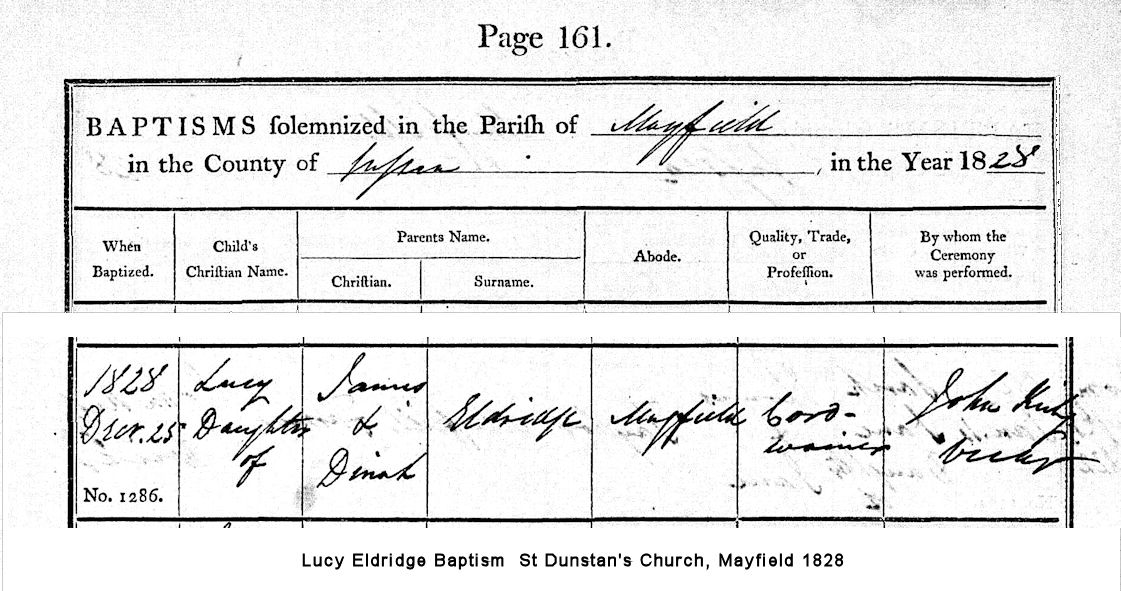 Page 161.
BAPTISMS ſolemnized in the Pariſh of Mayfield
in the County of Suſsex, in the Year 1828
When Baptized.
Child's Chriſtian Name.
Parents Name.
Chriſtian.
Surname.
Abode.
Quality, Trade, or Profeſſion.
By whom the Ceremony was performed.
1828
Decr. 25
No. 1286.
Lucy
Daughter
of
James
&
Dinah
Eldridge
Mayfield
Cord-
wainer
John Kirby
Vicar
Lucy Eldridge Baptism St Dunstan's Church, Mayfield 1828